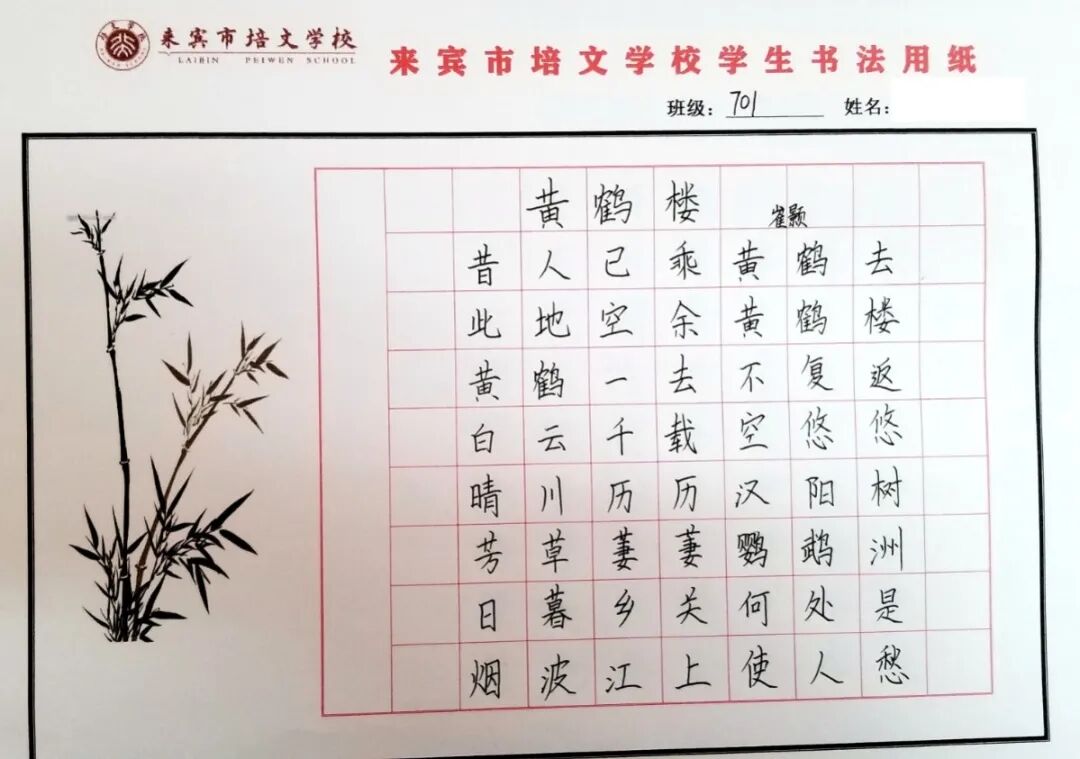 来宾市培文学校
LAIBIN PEIWEN SCHOOL
来宾市培文学校学生书法用纸
班级：701 姓名：
黄鹤楼 崔颢
昔人已乘黄鹤去
此地空余黄鹤楼
黄鹤一去不复返
白云千载空悠悠
晴川历历汉阳树
芳草萋萋鹦鹉洲
日暮乡关何处是
烟波江上使人愁